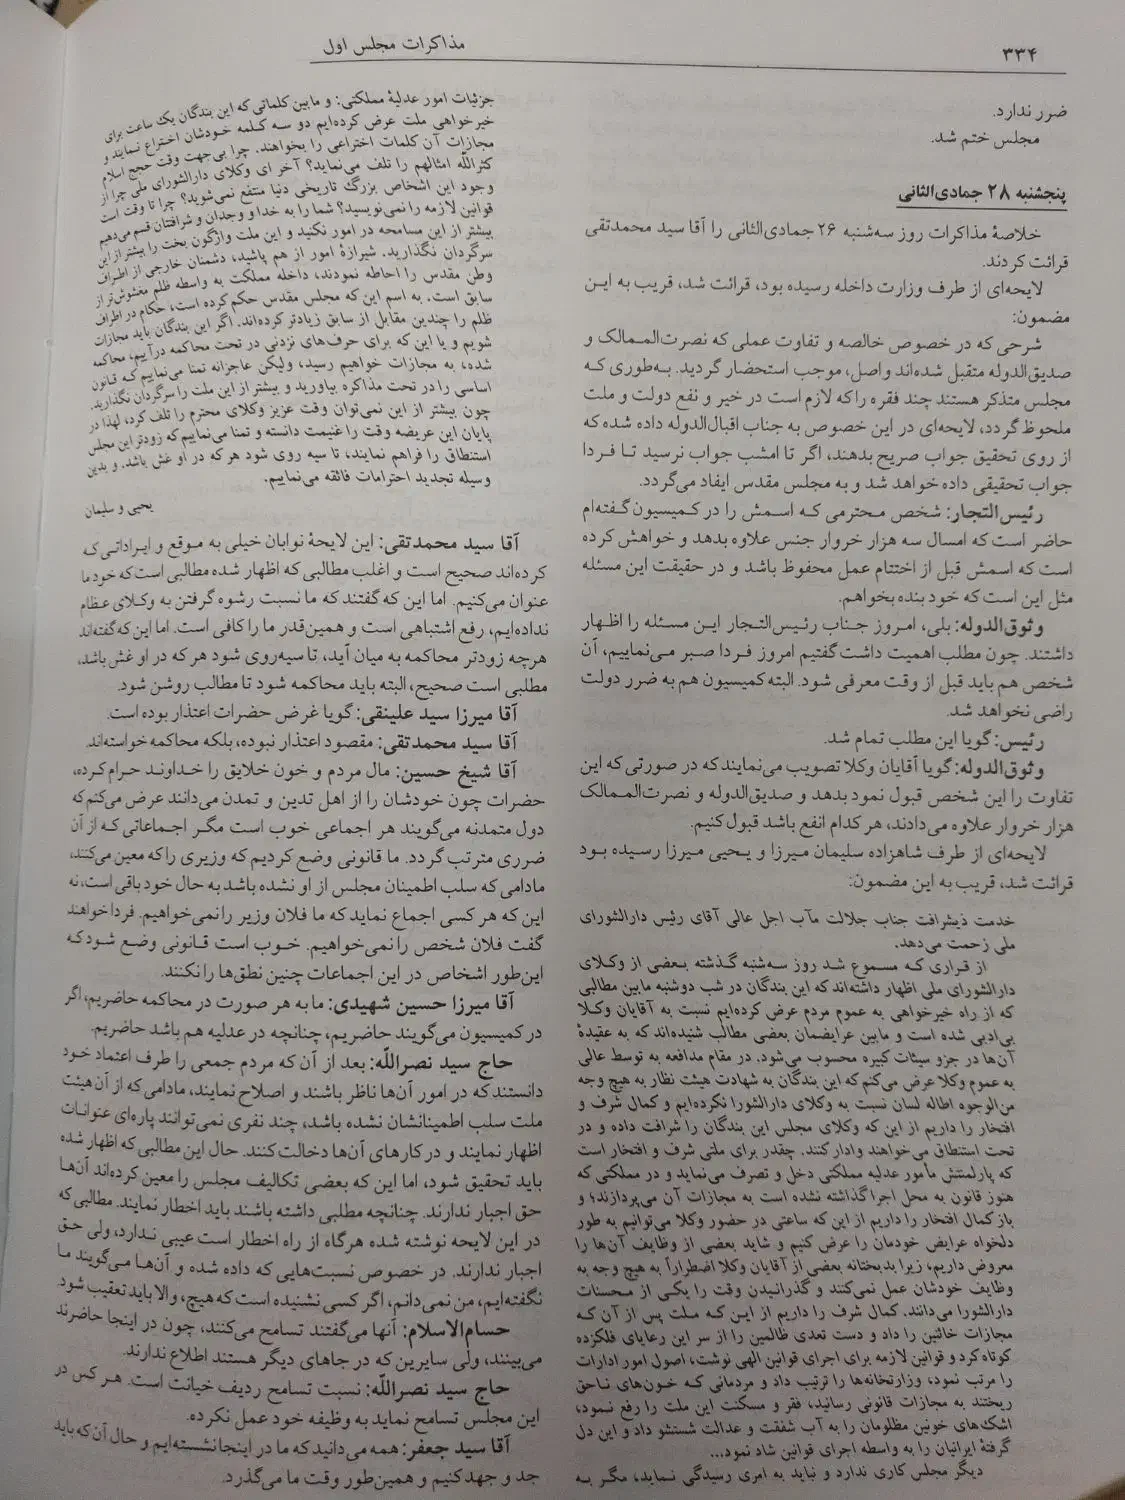 ۳۳۴
مذاکرات مجلس اول
ضرر ندارد.
مجلس ختم شد.
پنجشنبه ۲۸ جمادی‌الثانی
خلاصهٔ مذاکرات روز سه‌شنبه ۲۶ جمادی‌الثانی را آقا سید محمدتقی
قرائت کردند.
لایحه‌ای از طرف وزارت داخله رسیده بود، قرائت شد، قریب به این
مضمون:
شرحی که در خصوص خالصه و تفاوت عملی که نصرت‌الممالک و
صدیق‌الدوله متقبل شده‌اند واصل، موجب استحضار گردید. به‌طوری که
مجلس متذکر هستند چند فقره را که لازم است در خیر و نفع دولت و ملت
ملحوظ گردد، لایحه‌ای در این خصوص به جناب اقبال‌الدوله داده شده که
از روی تحقیق جواب صریح بدهند، اگر تا امشب جواب نرسید تا فردا
جواب تحقیقی داده خواهد شد و به مجلس مقدس ایفاد می‌گردد.
رئیس‌التجار: شخص محترمی که اسمش را در کمیسیون گفته‌ام
حاضر است که امسال سه هزار خروار جنس علاوه بدهد و خواهش کرده
است که اسمش قبل از اختتام عمل محفوظ باشد و در حقیقت این مسئله
مثل این است که خود بنده بخواهم.
وثوق‌الدوله: بلی، امروز جناب رئیس‌التجار این مسئله را اظهار
داشتند. چون مطلب اهمیت داشت گفتیم امروز فردا صبر می‌نماییم، آن
شخص هم باید قبل از وقت معرفی شود. البته کمیسیون هم به ضرر دولت
راضی نخواهد شد.
رئیس: گویا این مطلب تمام شد.
وثوق‌الدوله: گویا آقایان وکلا تصویب می‌نمایند که در صورتی که این
تفاوت را این شخص قبول نمود بدهد و صدیق‌الدوله و نصرت‌الممالک
هزار خروار علاوه می‌دادند، هر کدام انفع باشد قبول کنیم.
لایحه‌ای از طرف شاهزاده سلیمان میرزا و یحیی میرزا رسیده بود
قرائت شد، قریب به این مضمون:
خدمت ذیشرافت جناب جلالت مآب اجل عالی آقای رئیس دارالشورای
ملی زحمت می‌دهد.
از قراری که مسموع شد روز سه‌شنبه گذشته بعضی از وکلای
دارالشورای ملی اظهار داشته‌اند که این بندگان در شب دوشنبه مابین مطالبی
که از راه خیرخواهی به عموم مردم عرض کرده‌ایم نسبت به آقایان وکلا
بی‌ادبی شده است و مابین عرایضمان بعضی مطالب شنیده‌اند که به عقیدهٔ
آن‌ها در جزو سیئات کبیره محسوب می‌شود. در مقام مدافعه به توسط عالی
به عموم وکلا عرض می‌کنم که این بندگان به شهادت هیئت نظار به هیچ وجه
من‌الوجوه اطاله لسان نسبت به وکلای دارالشورا نکرده‌ایم و کمال شرف و
افتخار را داریم از این که وکلای مجلس این بندگان را شرافت داده و در
تحت استنطاق می‌خواهند وادار کنند. چقدر برای ملتی شرف و افتخار است
که پارلمنتش مأمور عدلیه مملکتی دخل و تصرف می‌نماید و در مملکتی که
هنوز قانون به محل اجرا گذاشته نشده است به مجازات آن می‌پردازند؛ و
باز کمال افتخار را داریم از این که ساعتی در حضور وکلا می‌توانیم به طور
دلخواه عرایض خودمان را عرض کنیم و شاید بعضی از وظایف آن‌ها را
معروض داریم، زیرا بدبختانه بعضی از آقایان وکلا اضطراراً به هیچ وجه به
وظایف خودشان عمل نمی‌کنند و گذرانیدن وقت را یکی از محسنات
دارالشورا می‌دانند. کمال شرف را داریم از این که ملت پس از آن که
مجازات خائنین را داد و دست تعدی ظالمین را از سر این رعایای فلکزده
کوتاه کرد و قوانین لازمه برای اجرای قوانین الهی نوشت، اصول امور ادارات
را مرتب نمود، وزارتخانه‌ها را ترتیب داد و مردمانی که خون‌های ناحق
ریختند به مجازات قانونی رسانید، فقر و مسکنت این ملت را رفع نمود،
اشک‌های خونین مظلومان را به آب شفقت و عدالت شستشو داد و این دل
گرفتهٔ ایرانیان را به واسطه اجرای قوانین شاد نمود...
دیگر مجلس کاری ندارد و نباید به امری رسیدگی نماید، مگر به
جزئیات امور عدلیهٔ مملکتی: و مابین کلماتی که این بندگان یک ساعت برای
خیرخواهی ملت عرض کرده‌ایم دو سه کلمه خودشان اختراع نمایند و
مجازات آن کلمات اختراعی را بخواهند. چرا بی‌جهت وقت حجج اسلام
کثرالله امثالهم را تلف می‌نماید؟ آخر ای وکلای دارالشورای ملی چرا از
وجود این اشخاص بزرگ تاریخی دنیا منتفع نمی‌شوید؟ چرا تا وقت است
قوانین لازمه را نمی‌نویسید؟ شما را به خدا و وجدان و شرافتتان قسم می‌دهیم
بیشتر از این مسامحه در امور نکنید و این ملت واژگون بخت را بیشتر از این
سرگردان نگذارید. شیرازهٔ امور از هم پاشید، دشمنان خارجی از اطراف
وطن مقدس را احاطه نمودند، داخله مملکت به واسطه ظلم مغشوش‌تر از
سابق است. به اسم این که مجلس مقدس حکم کرده است، حکام در اطراف
ظلم را چندین مقابل از سابق زیادتر کرده‌اند. اگر این بندگان باید مجازات
شویم و یا این که برای حرف‌های نزدنی در تحت محاکمه درآییم، محاکمه
شده، به مجازات خواهیم رسید، ولیکن عاجزانه تمنا می‌نماییم که قانون
اساسی را در تحت مذاکره بیاورید و بیشتر از این ملت را سرگردان نگذارید.
چون بیشتر از این نمی‌توان وقت عزیز وکلای محترم را تلف کرد، لهذا در
پایان این عریضه وقت را غنیمت دانسته و تمنا می‌نماییم که زودتر این مجلس
استنطاق را فراهم نمایند، تا سیه روی شود هر که در او غش باشد. و بدین
وسیله تجدید احترامات فائقه می‌نماییم.
یحیی و سلیمان
آقا سید محمدتقی: این لایحهٔ نوابان خیلی به موقع و ایراداتی که
کرده‌اند صحیح است و اغلب مطالبی که اظهار شده مطالبی است که خود ما
عنوان می‌کنیم. اما این که گفتند که ما نسبت رشوه گرفتن به وکلای عظام
نداده‌ایم، رفع اشتباهی است و همین‌قدر ما را کافی است. اما این که گفته‌اند
هرچه زودتر محاکمه به میان آید، تا سیه‌روی شود هر که در او غش باشد،
مطلبی است صحیح، البته باید محاکمه شود تا مطالب روشن شود.
آقا میرزا سید علینقی: گویا غرض حضرات اعتذار بوده است.
آقا سید محمدتقی: مقصود اعتذار نبوده، بلکه محاکمه خواسته‌اند.
آقا شیخ حسین: مال مردم و خون خلایق را خداوند حرام کرده،
حضرات چون خودشان را از اهل تدین و تمدن می‌دانند عرض می‌کنم که
دول متمدنه می‌گویند هر اجماعی خوب است مگر اجماعاتی که از آن
ضرری مترتب گردد. ما قانونی وضع کردیم که وزیری را که معین می‌کنند،
مادامی که سلب اطمینان مجلس از او نشده باشد به حال خود باقی است، نه
این که هر کسی اجماع نماید که ما فلان وزیر را نمی‌خواهیم. فردا خواهند
گفت فلان شخص را نمی‌خواهیم. خوب است قانونی وضع شود که
این‌طور اشخاص در این اجماعات چنین نطق‌ها را نکنند.
آقا میرزا حسین شهیدی: ما به هر صورت در محاکمه حاضریم، اگر
در کمیسیون می‌گویند حاضریم، چنانچه در عدلیه هم باشد حاضریم.
حاج سید نصرالله: بعد از آن که مردم جمعی را طرف اعتماد خود
دانستند که در امور آن‌ها ناظر باشند و اصلاح نمایند، مادامی که از آن هیئت
ملت سلب اطمینانشان نشده باشد، چند نفری نمی‌توانند پاره‌ای عنوانات
اظهار نمایند و در کارهای آن‌ها دخالت کنند. حال این مطالبی که اظهار شده
باید تحقیق شود، اما این که بعضی تکالیف مجلس را معین کرده‌اند آن‌ها
حق اجبار ندارند. چنانچه مطلبی داشته باشند باید اخطار نمایند. مطالبی که
در این لایحه نوشته شده هرگاه از راه اخطار است عیبی ندارد، ولی حق
اجبار ندارند. در خصوص نسبت‌هایی که داده شده و آن‌ها می‌گویند ما
نگفته‌ایم، من نمی‌دانم، اگر کسی نشنیده است که هیچ، والا باید تعقیب شود.
حسام‌الاسلام: آنها می‌گفتند تسامح می‌کنند، چون در اینجا حاضرند
می‌بینند، ولی سایرین که در جاهای دیگر هستند اطلاع ندارند.
حاج سید نصرالله: نسبت تسامح ردیف خیانت است. هر کس در
این مجلس تسامح نماید به وظیفه خود عمل نکرده.
آقا سید جعفر: همه می‌دانید که ما در اینجا نشسته‌ایم و حال آن‌که باید
جد و جهد کنیم و همین‌طور وقت ما می‌گذرد.